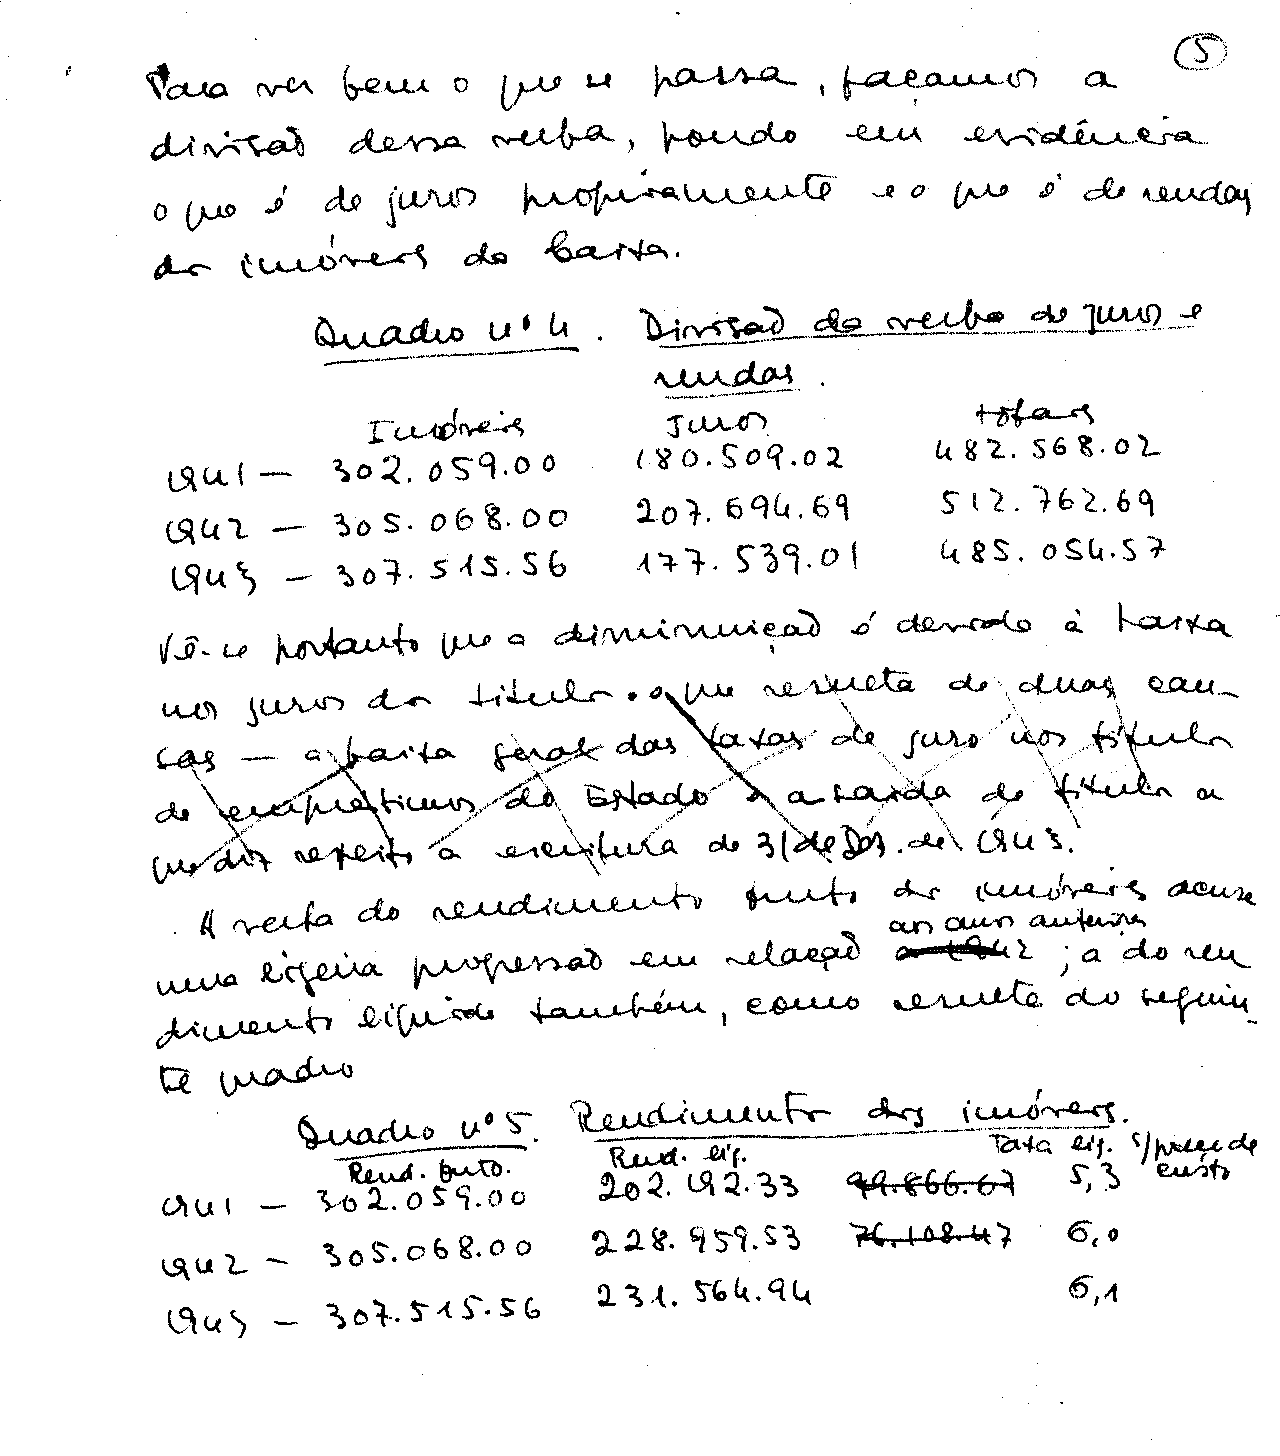 5
Para ver bem o que se passa, façamos a
divisão dessa verba, pondo em evidência
o que é de juros propriamente e o que é de rendas
dos imóveis da Caixa.
Quadro nº 4. Divisão da verba de juros e
rendas.
Imóveis Juros totais
1941 — 302.059.00 180.509.02 482.568.02
1942 — 305.068.00 207.694.69 512.762.69
1943 — 307.515.56 177.539.01 485.054.57
Vê-se portanto que a diminuição é devida à baixa
nos juros dos títulos. o que resulta de duas cau-
sas — a baixa geral das taxas de juro nos títulos
de empréstimos do Estado e a saída de títulos a
que diz respeito a escritura de 31 de Dez. de 1943.
A verba do rendimento bruto dos imóveis acusa
aos anos anteriores
uma ligeira progressão em relação a 1942; a do ren
dimento líquido também, como resulta do seguin-
te quadro
Quadro nº 5. Rendimento dos imóveis.
Rend. bruto. Rend. liq. Taxa liq. s/preço de
custo
1941 — 302.059.00 202.192.33 99.866.67 5,3
1942 — 305.068.00 228.959.53 76.108.47 6,0
1943 — 307.515.56 231.564.94 6,1